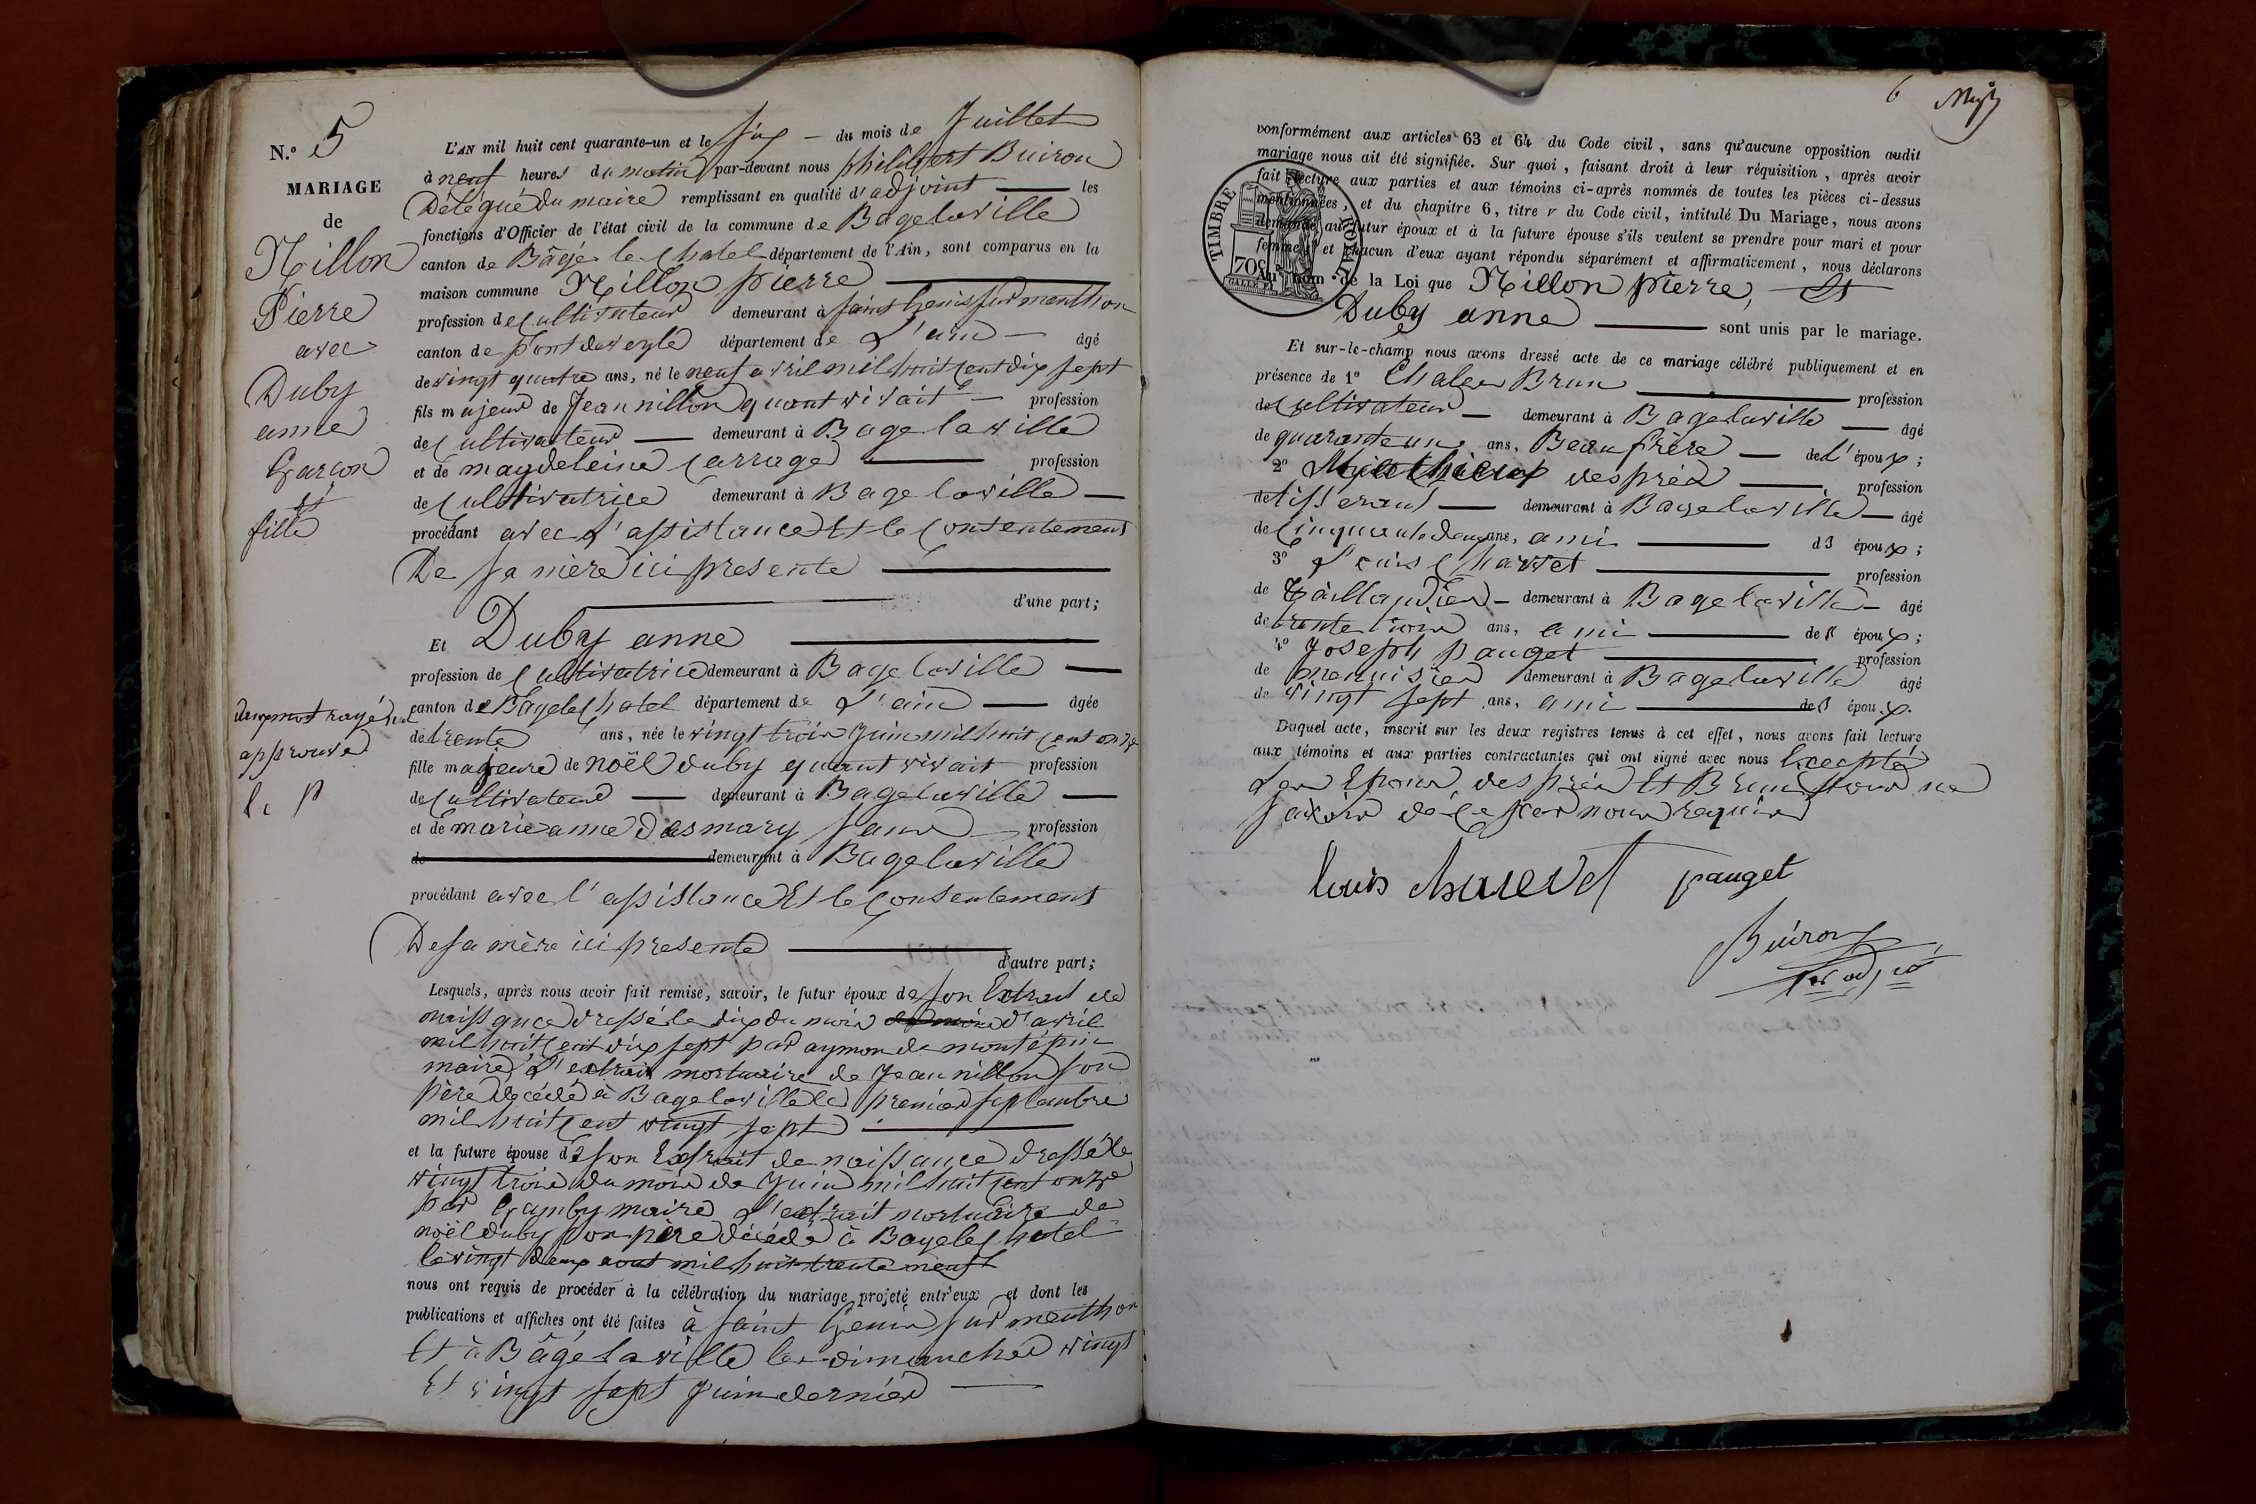 N.o 5
MARIAGE
de
Nillon
Pierre
avec
Duby
anne
Garçon
et
fille
deux mots rayés nul
approuvé
L'AN mil huit cent quarante-un et le six — du mois de Juillet
à neuf heures du matin par-devant nous philibert Buiron
Délégué du maire remplissant en qualité d'adjoint les
fonctions d'Officier de l'état civil de la commune de Bagelaville
canton de Bâgé le Chatel département de l'Ain, sont comparus en la
maison commune Nillon pierre
profession de Cultivateur demeurant à saint genis sur menthon
canton de pont de veyle département de L'ain — âgé
de vingt quatre ans, né le neuf avril mil huit Cent dix sept
fils majeur de Jean nillon quant vivait — profession
de Cultivateur — demeurant à Bagelaville
et de magdeleine Carrage profession
de Cultivatrice demeurant à Bagelaville —
procédant avec L'assistance Et le Consentement
De sa mère ici presente
d'une part;
Et Duby anne
profession de Cultivatrice demeurant à Bagelaville —
canton de Bagele Chatel département de L'ain — âgée
de trente ans, née le vingt trois Juin mil huit Cent onze
fille majeure de noël duby quant vivait profession
de Cultivateur — demeurant à Bagelaville —
et de marie anne Desmary sans — profession
de demeurant à Bagelaville
procédant avec l'assistance Et le Consentement
De sa mère ici presente
d'autre part;
Lesquels, après nous avoir fait remise, savoir, le futur époux de son Extrait de
naissance dressé le dix du mois du mois d'avril
mil huit Cent dix sept par aymon de montépin
maire, L'extrait mortuaire de Jean nillon son
père décédé à Bagelaville le premier septembre
mil huit Cent vingt sept
et la future épouse de son Extrait de naissance dressé le
vingt trois du mois de Juin mil huit Cent onze
par maire, L'extrait mortuaire de
noël duby son père décédé à Bagele Chatel
le vingt deux aout mil huit trente neuf
nous ont requis de procéder à la célébration du mariage projeté entr'eux et dont les
publications et affiches ont été faites à saint Genis sur menthon
Et à Bâgé laville les dimanches vingt
Et vingt sept Juin dernier —
6
conformément aux articles 63 et 64 du Code civil, sans qu'aucune opposition audit
mariage nous ait été signifiée. Sur quoi, faisant droit à leur réquisition, après avoir
fait lecture aux parties et aux témoins ci-après nommés de toutes les pièces ci-dessus
mentionnées, et du chapitre 6, titre v du Code civil, intitulé Du Mariage, nous avons
demandé au futur époux et à la future épouse s'ils veulent se prendre pour mari et pour
femme; et chacun d'eux ayant répondu séparément et affirmativement, nous déclarons
Au nom de la Loi que Nillon pierre, — Et
Duby anne sont unis par le mariage.
TIMBRE ROYAL
70C
Et sur-le-champ nous avons dressé acte de ce mariage célébré publiquement et en
présence de 1o Brun profession
de Cultivateur — demeurant à Bagelaville — âgé
de quarante un ans, Beau frère — de L'époux;
2o Mathieux despréd profession
de tisserand — demeurant à Bagelaville — âgé
de Cinquante deux ans, ami époux;
3o Louis Charvet profession
de Taillandier — demeurant à Bagelaville — âgé
de trente trois ans, ami de époux;
4o Joseph pauget profession
de menuisier demeurant à Bagelaville âgé
de vingt sept ans, ami de époux.
Duquel acte, inscrit sur les deux registres tenus à cet effet, nous avons fait lecture
aux témoins et aux parties contractantes qui ont signé avec nous Excepté
Les Epoux, despréd Et Brun pour ne
savoir de Ce faire nous requis
louis charvet pauget
Buiron